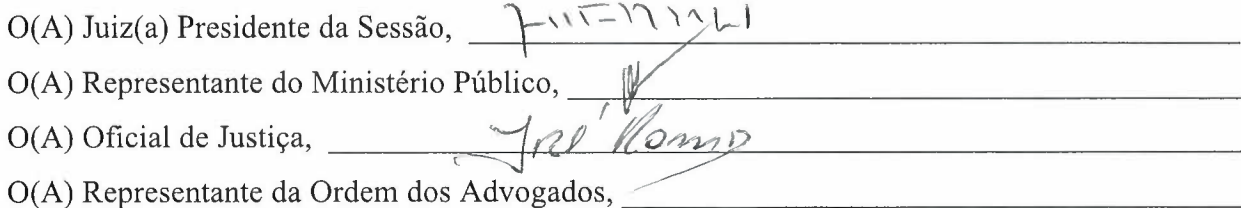 O(A) Juiz(a) Presidente da Sessão,
O(A) Representante do Ministério Público,
O(A) Oficial de Justiça, José
O(A) Representante da Ordem dos Advogados,